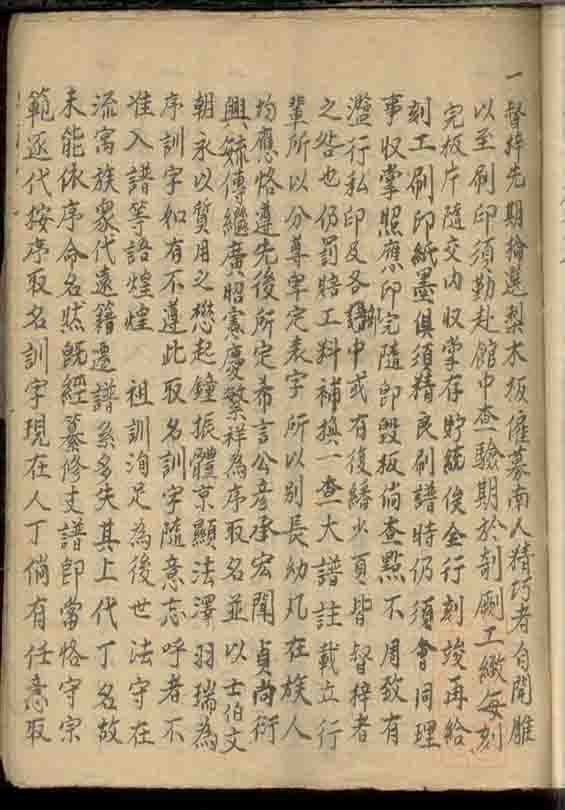 一督梓先期撿選梨木板僱募南人精巧者自開雕
以至刷印須勤赴館中查驗期於剞劂工緻每刻
完板片隨交內収掌存貯統俟全行刻竣再給
刻工刷印紙墨俱須精良刷譜時仍須會同理
事収掌照應印完隨卽毀板倘查點不周致有
濫行私印及各譜中或有復繙少頁皆督梓者
之咎也仍罰賠工料補換一查大譜註載立行
輩所以分尊卑定表字所以別長幼凡在族人
均應恪遵先後所定希言公彥承宏聞貞尚衍
興毓傳繼廣昭憲慶繁祥為序取名並以士伯文
朝永以質用之懋起鐘振體京顯法澤羽瑞為
序訓字如有不遵此取名訓字隨意忘呼者不
准入譜等語煌煌 祖訓洵足為後世法守在
流寓族衆代遠籍遷譜系多失其上代丁名故
未能依序命名然旣經纂修支譜卽當恪守宗
範逐代按序取名訓字現在人丁倘有任意取